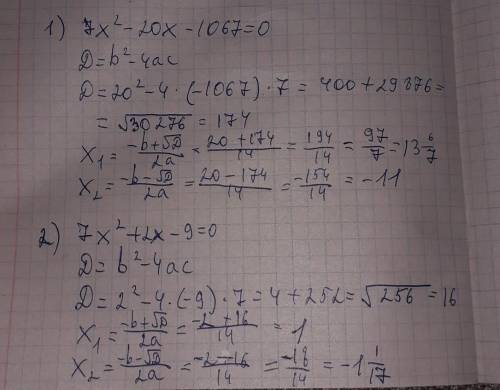 1) 7x² - 20x - 1067 = 0
D = b² - 4ac
D = 20² - 4 · (-1067) · 7 = 400 + 29876 =
= √30276 = 174
X₁ = (-b+√D)/2a = (20+174)/14 = 194/14 = 97/7 = 13 6/7
X₂ = (-b-√D)/2a = (20-174)/14 = -154/14 = -11
2) 7x² + 2x - 9 = 0
D = b² - 4ac
D = 2² - 4 · (-9) · 7 = 4 + 252 = √256 = 16
X₁ = (-b+√D)/2a = (-2+16)/14 = 1
X₂ = (-b-√D)/2a = (-2-16)/14 = -18/14 = -1 1/17